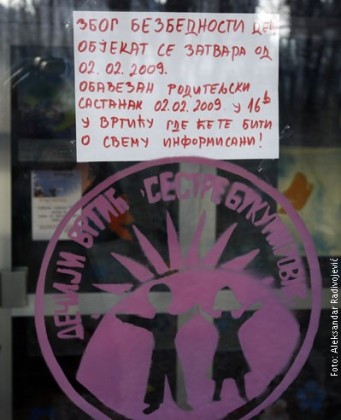 ЗБОГ БЕЗБЕДНОСТИ ДЕЦ
ОБЈЕКАТ СЕ ЗАТВАРА ОД
02. 02. 2009.
ОБАВЕЗАН РОДИТЕЉСКИ
САСТАНАК 02.02.2009 У 16h
У ВРТИЋУ ГДЕ ЋЕТЕ БИТИ
О СВЕМУ ИНФОРМИСАНИ!
ДЕЧИЈИ ВРТИЋ СЕСТРЕ БУКУМИРОВИЋ
Foto: Aleksandar Radivojević